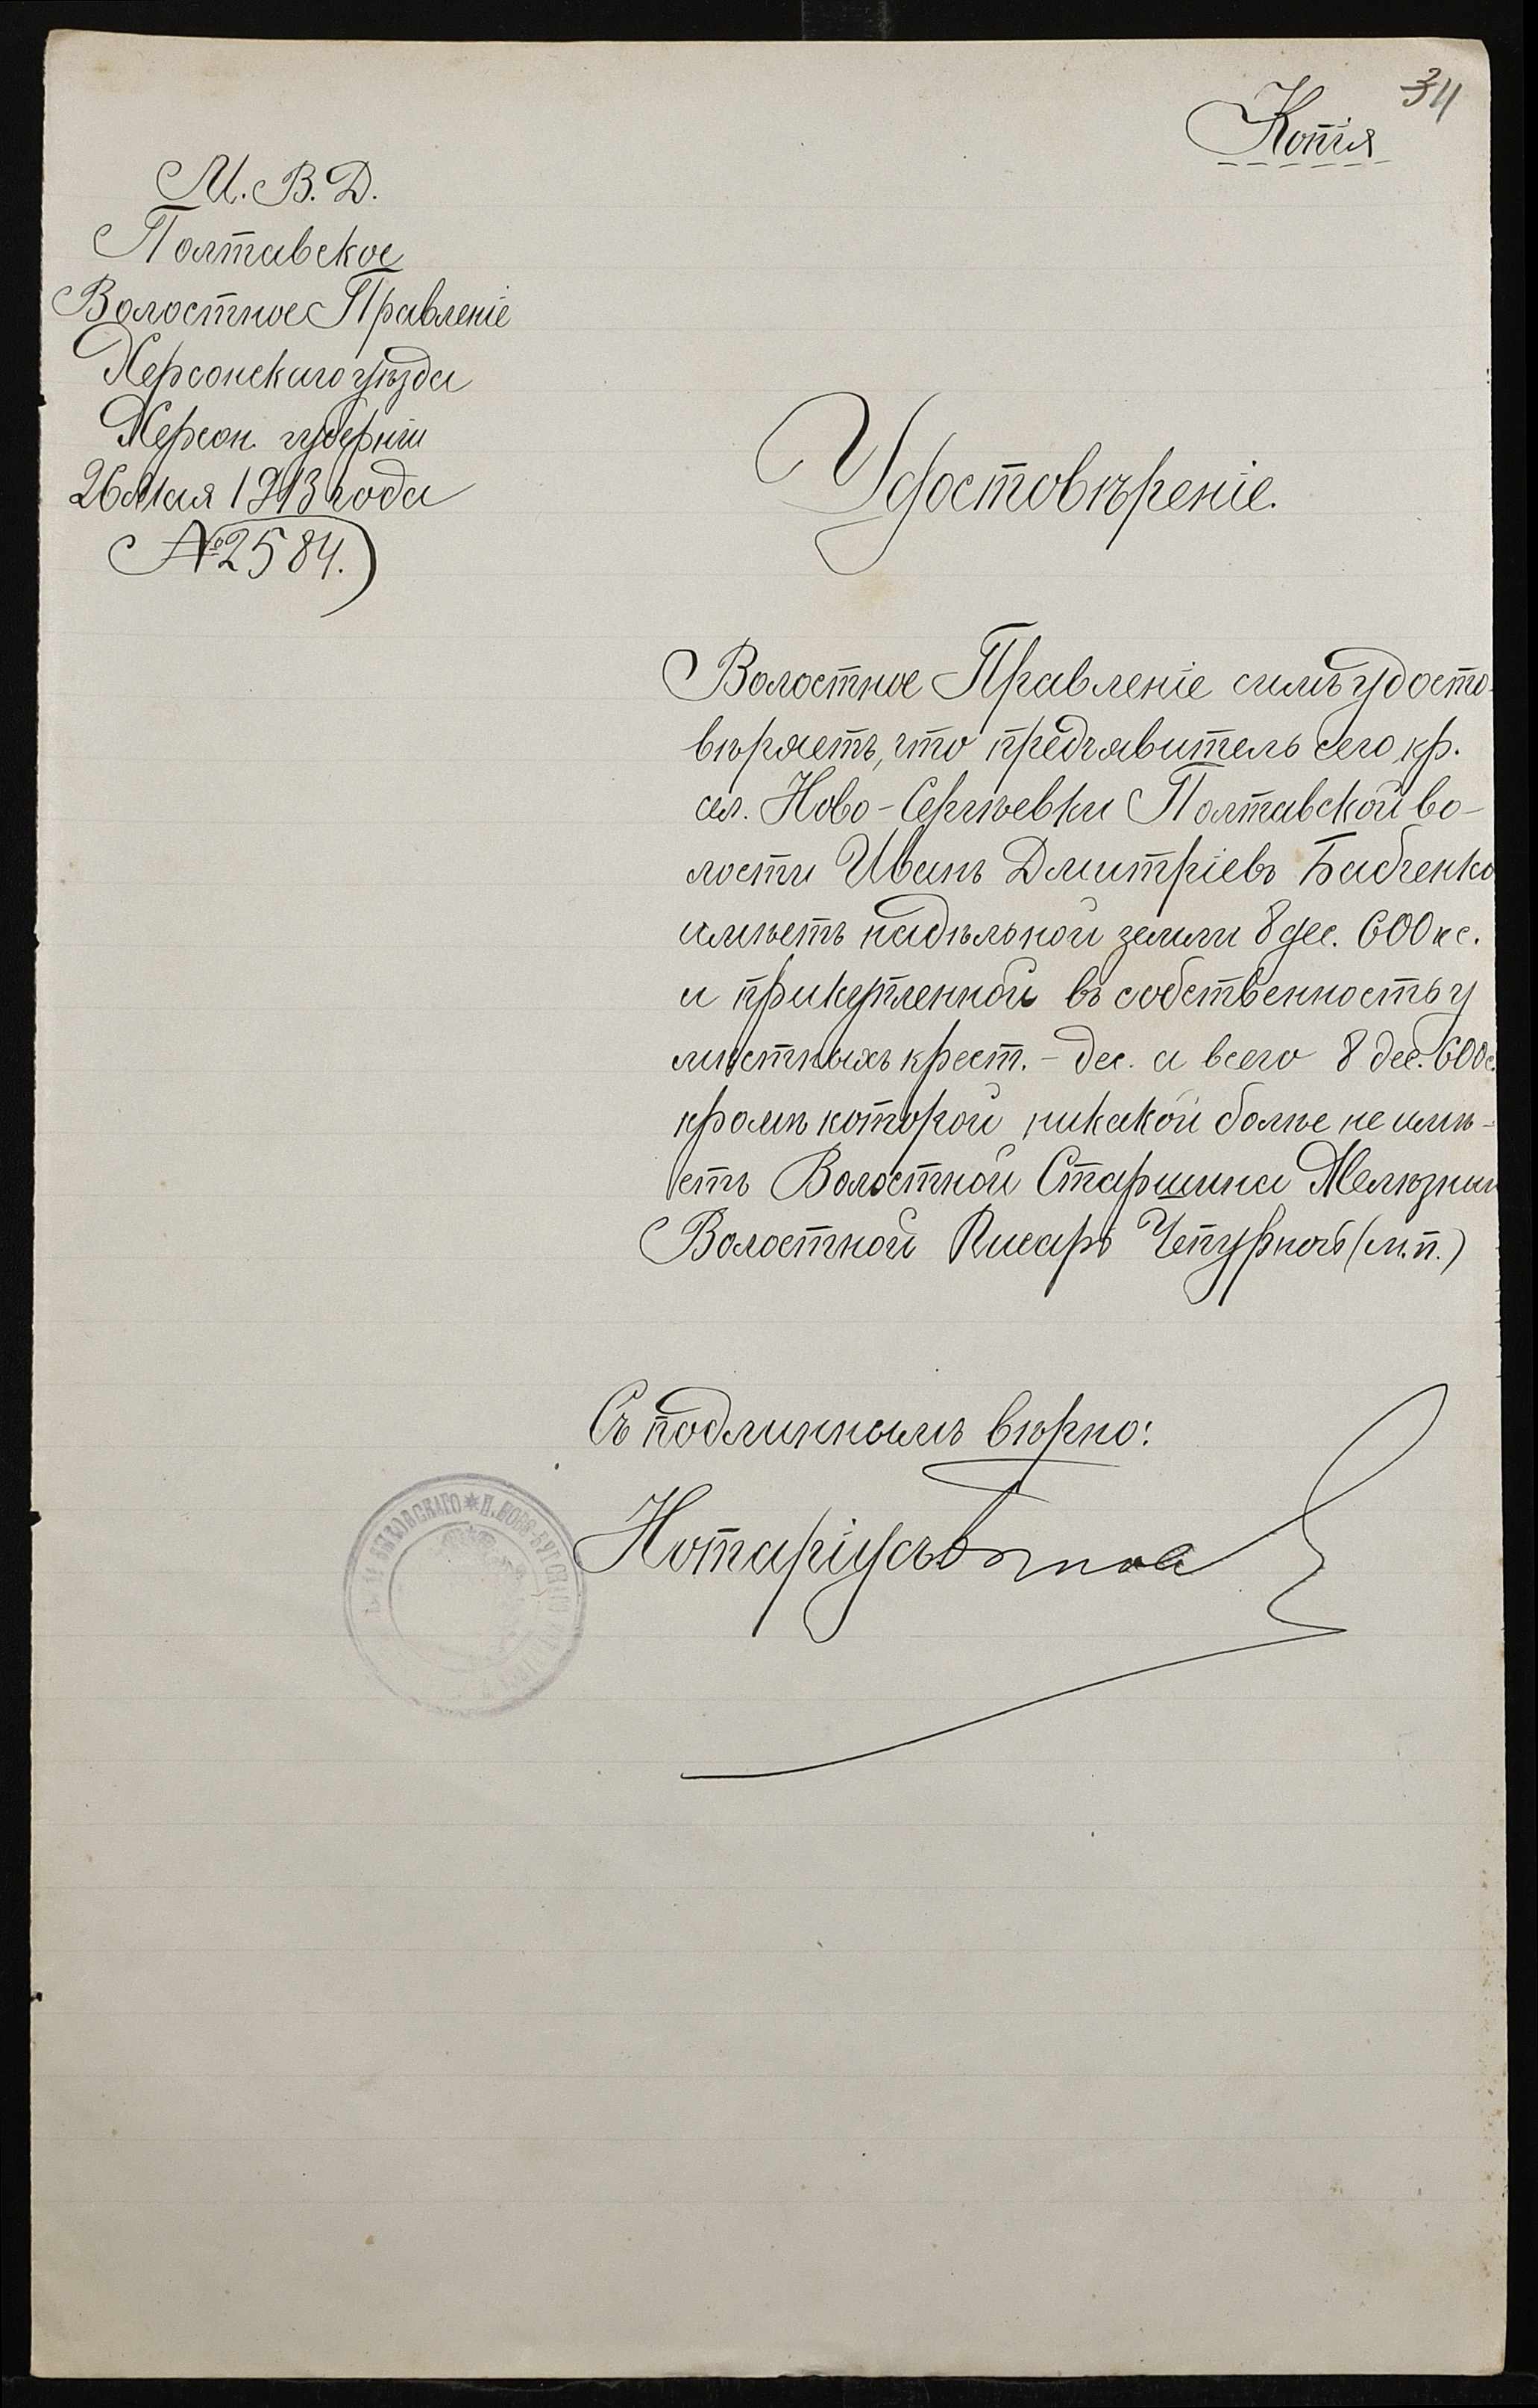 34
Копія
М. В. Д.
Полтавское
Волостное Правленіе
Херсонскаго уѣзда
Херсон. губерніи
26 мая 1913 года
№ 2584.
Удостовѣреніе.
Волостное Правленіе симъ удосто-
вѣряетъ, что предъявитель сего кр.
сел. Ново-Сергѣевки Полтавской во-
лости Иванъ Дмитріевъ Бабченко
имѣетъ надѣльной земли 8 дес. 600 кс.
и прикупленной въ собственность у
мѣстныхъ крест. - дес. а всего 8 дес. 600 с.
кромѣ которой никакой болѣе не имѣ-
етъ Волостной Старшина
Волостной Писарь Чепурной (м.п.)
Съ подлиннымъ вѣрно:
Нотаріусъ